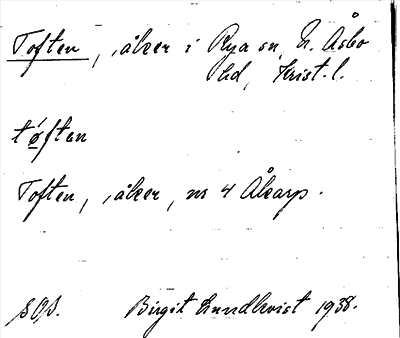 Toften, åker i Rya sn, N. Åsbo
hd, Krist. l.
tøften
Toften, åker, nr 4 Åkarp.
SOS. Birgit Lundkvist 1938.